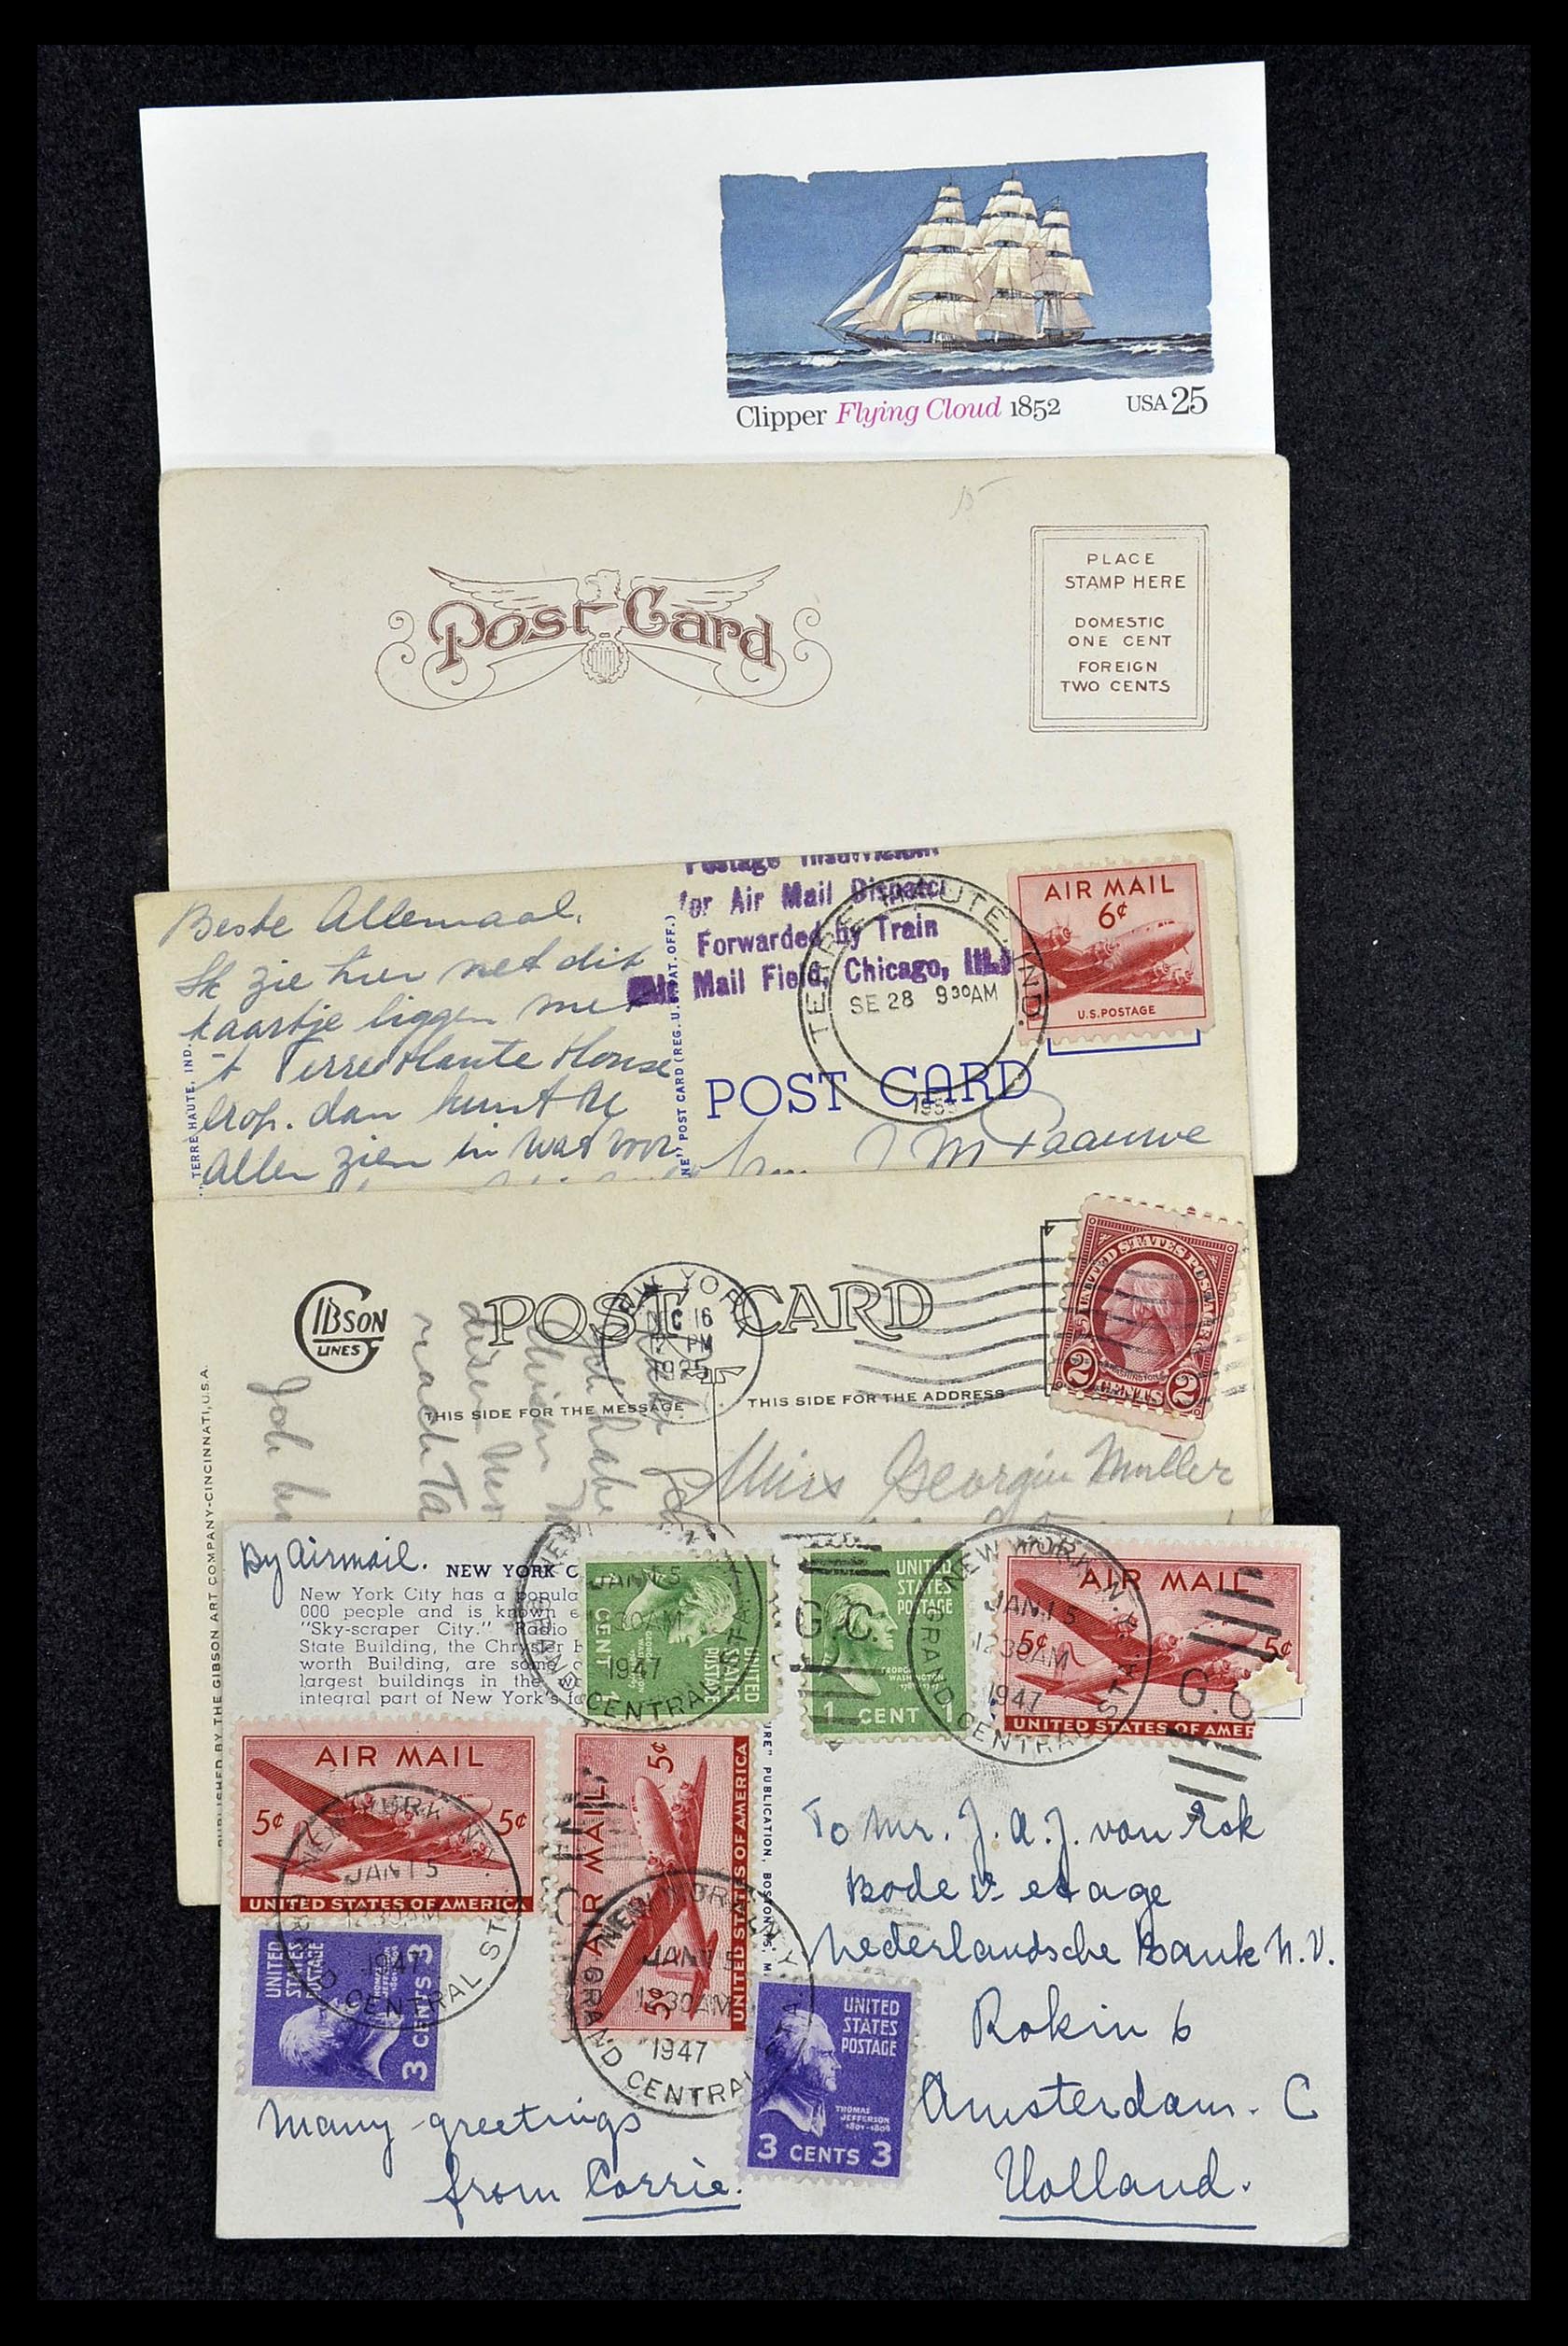 Clipper Flying Cloud 1852 USA 25
Post Card
PLACE
STAMP HERE
DOMESTIC
ONE CENT
FOREIGN
TWO CENTS
Beste Allemaal,
Ik zie hier net dit
kaartje liggen met
't Terre Haute House
erop. dan kunt U
Allen zien in wat voor
TERRE HAUTE, IND.
POST CARD (REG. U.S. PAT. OFF.)
Postage Insufficient
for Air Mail Dispatch
Forwarded by Train
Mail Field, Chicago, Ill.
TERRE HAUTE, IND.
SE 28 930AM
AIR MAIL
6¢
U.S. POSTAGE
POST CARD
J M Paauwe
GIBSON
LINES
POST CARD
NEW YORK
16
PM
1925
UNITED STATES POSTAGE
WASHINGTON
2 CENTS 2
THIS SIDE FOR THE MESSAGE
THIS SIDE FOR THE ADDRESS
PUBLISHED BY THE GIBSON ART COMPANY-CINCINNATI, U.S.A.
Miss Georgia Muller
By Airmail.
NEW YORK C
New York City has a popula
000 people and is known
"Sky-scraper City." Radio
State Building, the Chrysler B
worth Building, are some
largest buildings in the wo
integral part of New York's fa
UNITED
STATES
POSTAGE
1 CENT
NEW YORK, N.Y.
JAN 15
1230AM
1947
GRAND CENTRAL STA.
UNITED
STATES
POSTAGE
GEORGE
WASHINGTON
1 CENT 1
G.C.
NEW YORK, N.Y.
JAN 15
1230AM
1947
GRAND CENTRAL STA.
AIR MAIL
5¢ 5¢
UNITED STATES OF AMER
G.C.
AIR MAIL
5¢ 5¢
UNITED STATES OF AMERICA
NEW YORK, N.Y.
JAN 15
1230AM
1947
GRAND CENTRAL STA.
AIR MAIL
5¢ 5¢
UNITED STATES OF AMERICA
NEW YORK, N.Y.
JAN 15
1230AM
1947
GRAND CENTRAL STA.
URE" PUBLICATION, BOSTON 15, M
UNITED
STATES
POSTAGE
3 CENTS 3
UNITED
STATES
POSTAGE
THOMAS
JEFFERSON
1801-1809
3 CENTS 3
To Mr. J. A. J. van Eck
Bode 1e etage
Nederlandsche Bank N.V.
Rokin 6
Amsterdam. C
Holland.
Many greetings
from Corrie.